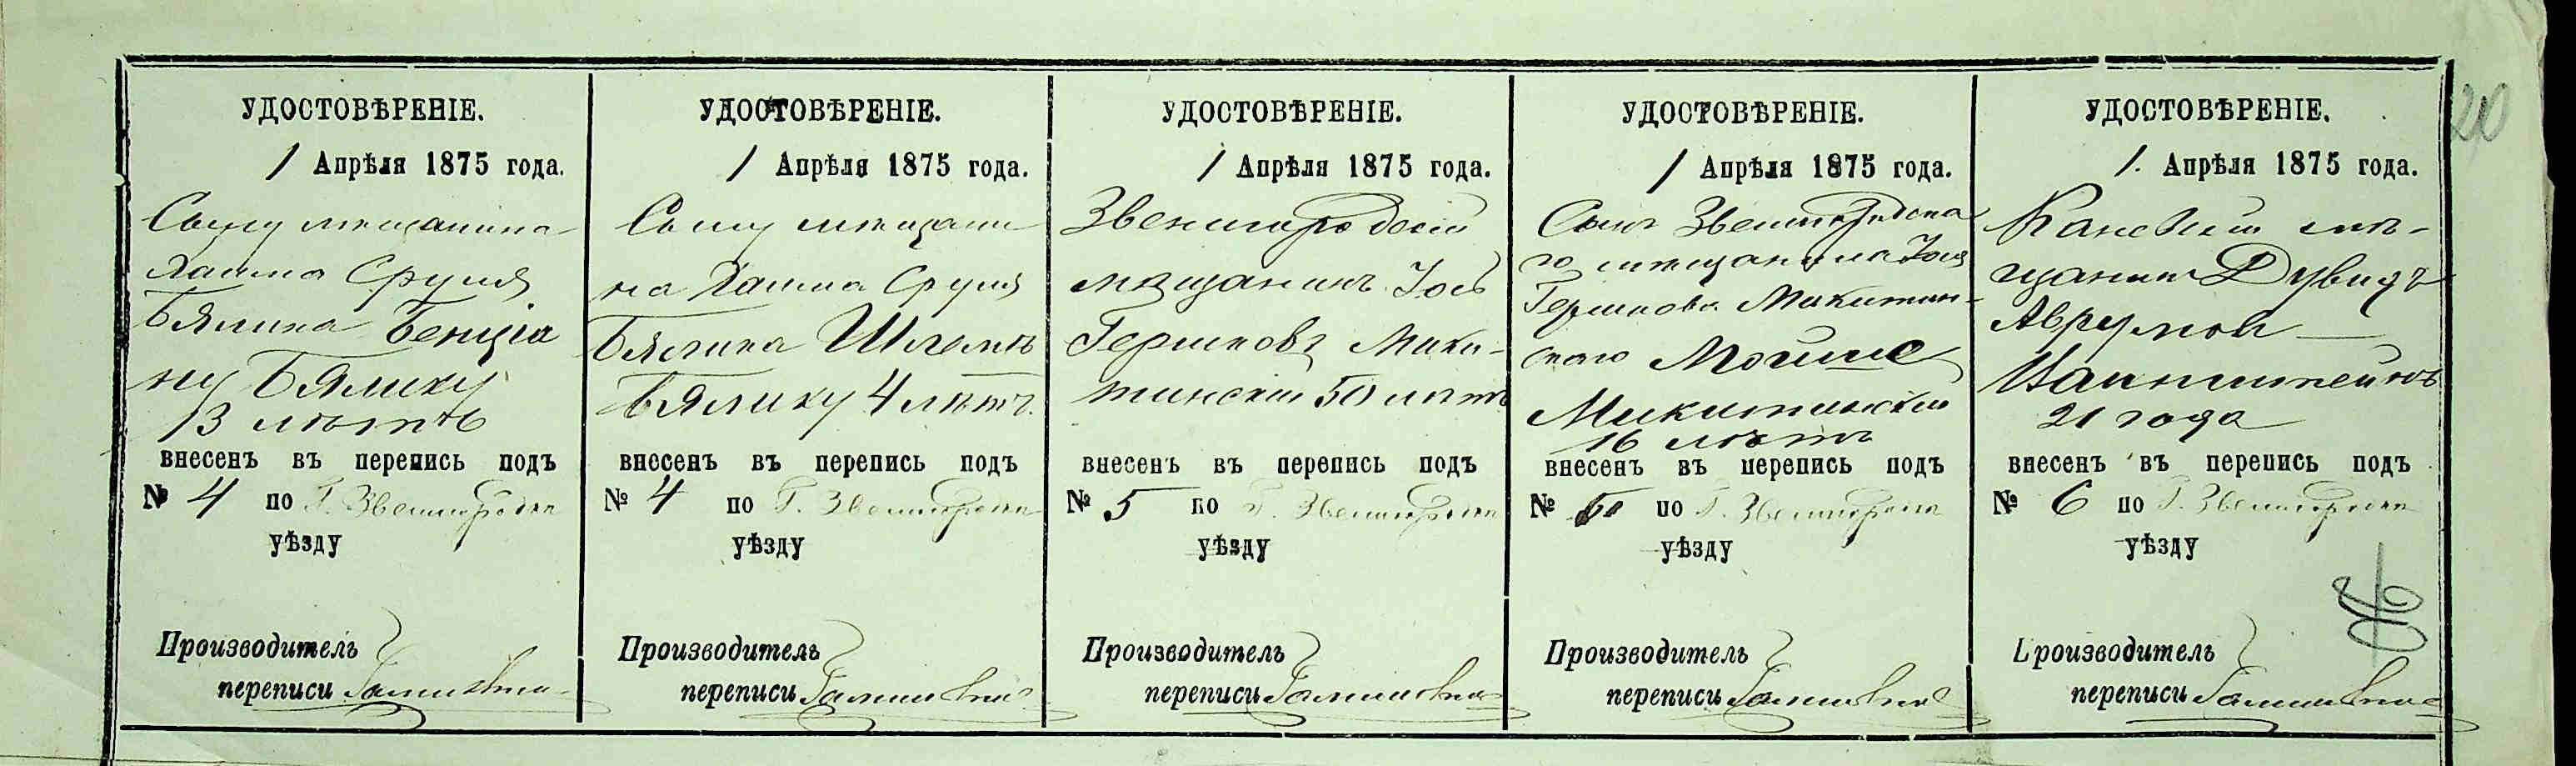 20
УДОСТОВѢРЕНІЕ.
1 Апрѣля 1875 года.
Сыну мещанина
Хаима Сруля
Бялика Бенціа
ну Бялику
13 лѣтъ
внесенъ въ перепись подъ
№ 4 по Г. Звенигородка
уѣзду
Производитель
переписи
УДОСТОВѢРЕНІЕ.
1 Апрѣля 1875 года.
Сыну мещани
на Хаима Сруля
Бялика Шлемѣ
Бялику 4 лѣтъ.
внесенъ въ перепись подъ
№ 4 по Г. Звенигородка
уѣзду
Производитель
переписи
УДОСТОВѢРЕНІЕ.
1 Апрѣля 1875 года.
Звенигородскій
мѣщанинъ Іось
Гершковъ Мики-
тинскій 50 лѣтъ
внесенъ въ перепись подъ
№ 5 по Г. Звенигородка
уѣзду
Производитель
переписи
УДОСТОВѢРЕНІЕ.
1 Апрѣля 1875 года.
Сынъ Звенигородска
го мещанина Іося
Гершкова Микитин-
скаго Мойше
Микитинскій
16 лѣтъ
внесенъ въ перепись подъ
№ 5 по Г. Звенигородка
уѣзду
Производитель
переписи
УДОСТОВѢРЕНІЕ.
1. Апрѣля 1875 года.
Каневскій мѣ-
щанинъ Дувидъ
Аврумов
Ванштейнъ
21 года
внесенъ въ перепись подъ
№ 6 по Г. Звенигородка
уѣзду
Производитель
переписи